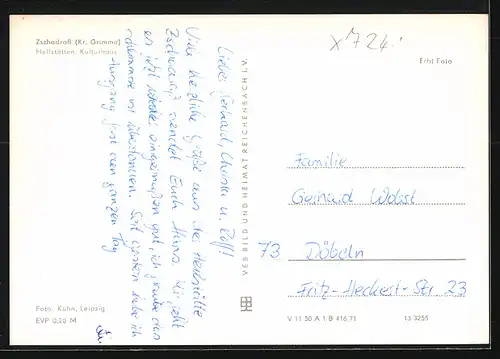 Zschadraß (Kr. Grimma)
Heilstätten, Kulturhaus
x 724
Echt Foto
Lieber Gerhard, Christa u. Rolf!
Viele herzliche Grüße aus der Heilstätte
Zschadraß sendet Euch Mir geht
es jetzt wieder einigermaßen gut, ich
ist überstanden. Seit gestern habe ich
Ausgang fast den ganzen Tag
VEB BILD UND HEIMAT REICHENBACH I.V.
Familie
Gerhard Wobst
73 Döbeln
Fritz-Heckert-Str. 23
Foto: Kühn, Leipzig
EVP 0,20 M
V 11 50 A 1 B 416/71 13/3255